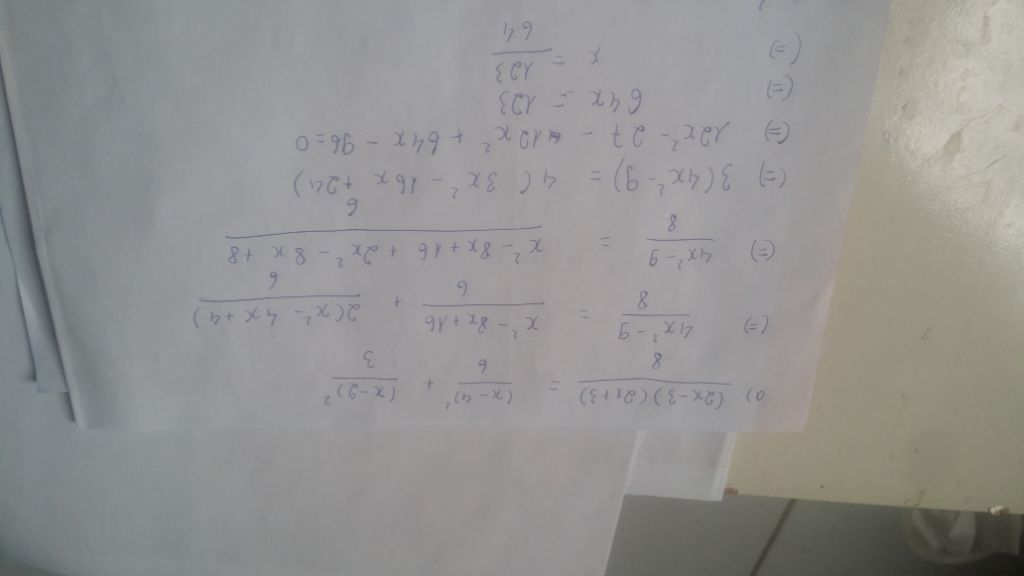 a) (2x-3)(2x+3)/8 = (x-4)²/6 + (x-2)²/3
(=) 4x²-9/8 = x²-8x+16/6 + 2(x²-4x+4)/6
(=) 4x²-9/8 = x²-8x+16+2x²-8x+8/6
(=) 3(4x²-9) = 4(3x²-16x+24)
(=) 12x²-27-12x²+64x-96=0
(=) 64x = 123
(=) x = 123/64